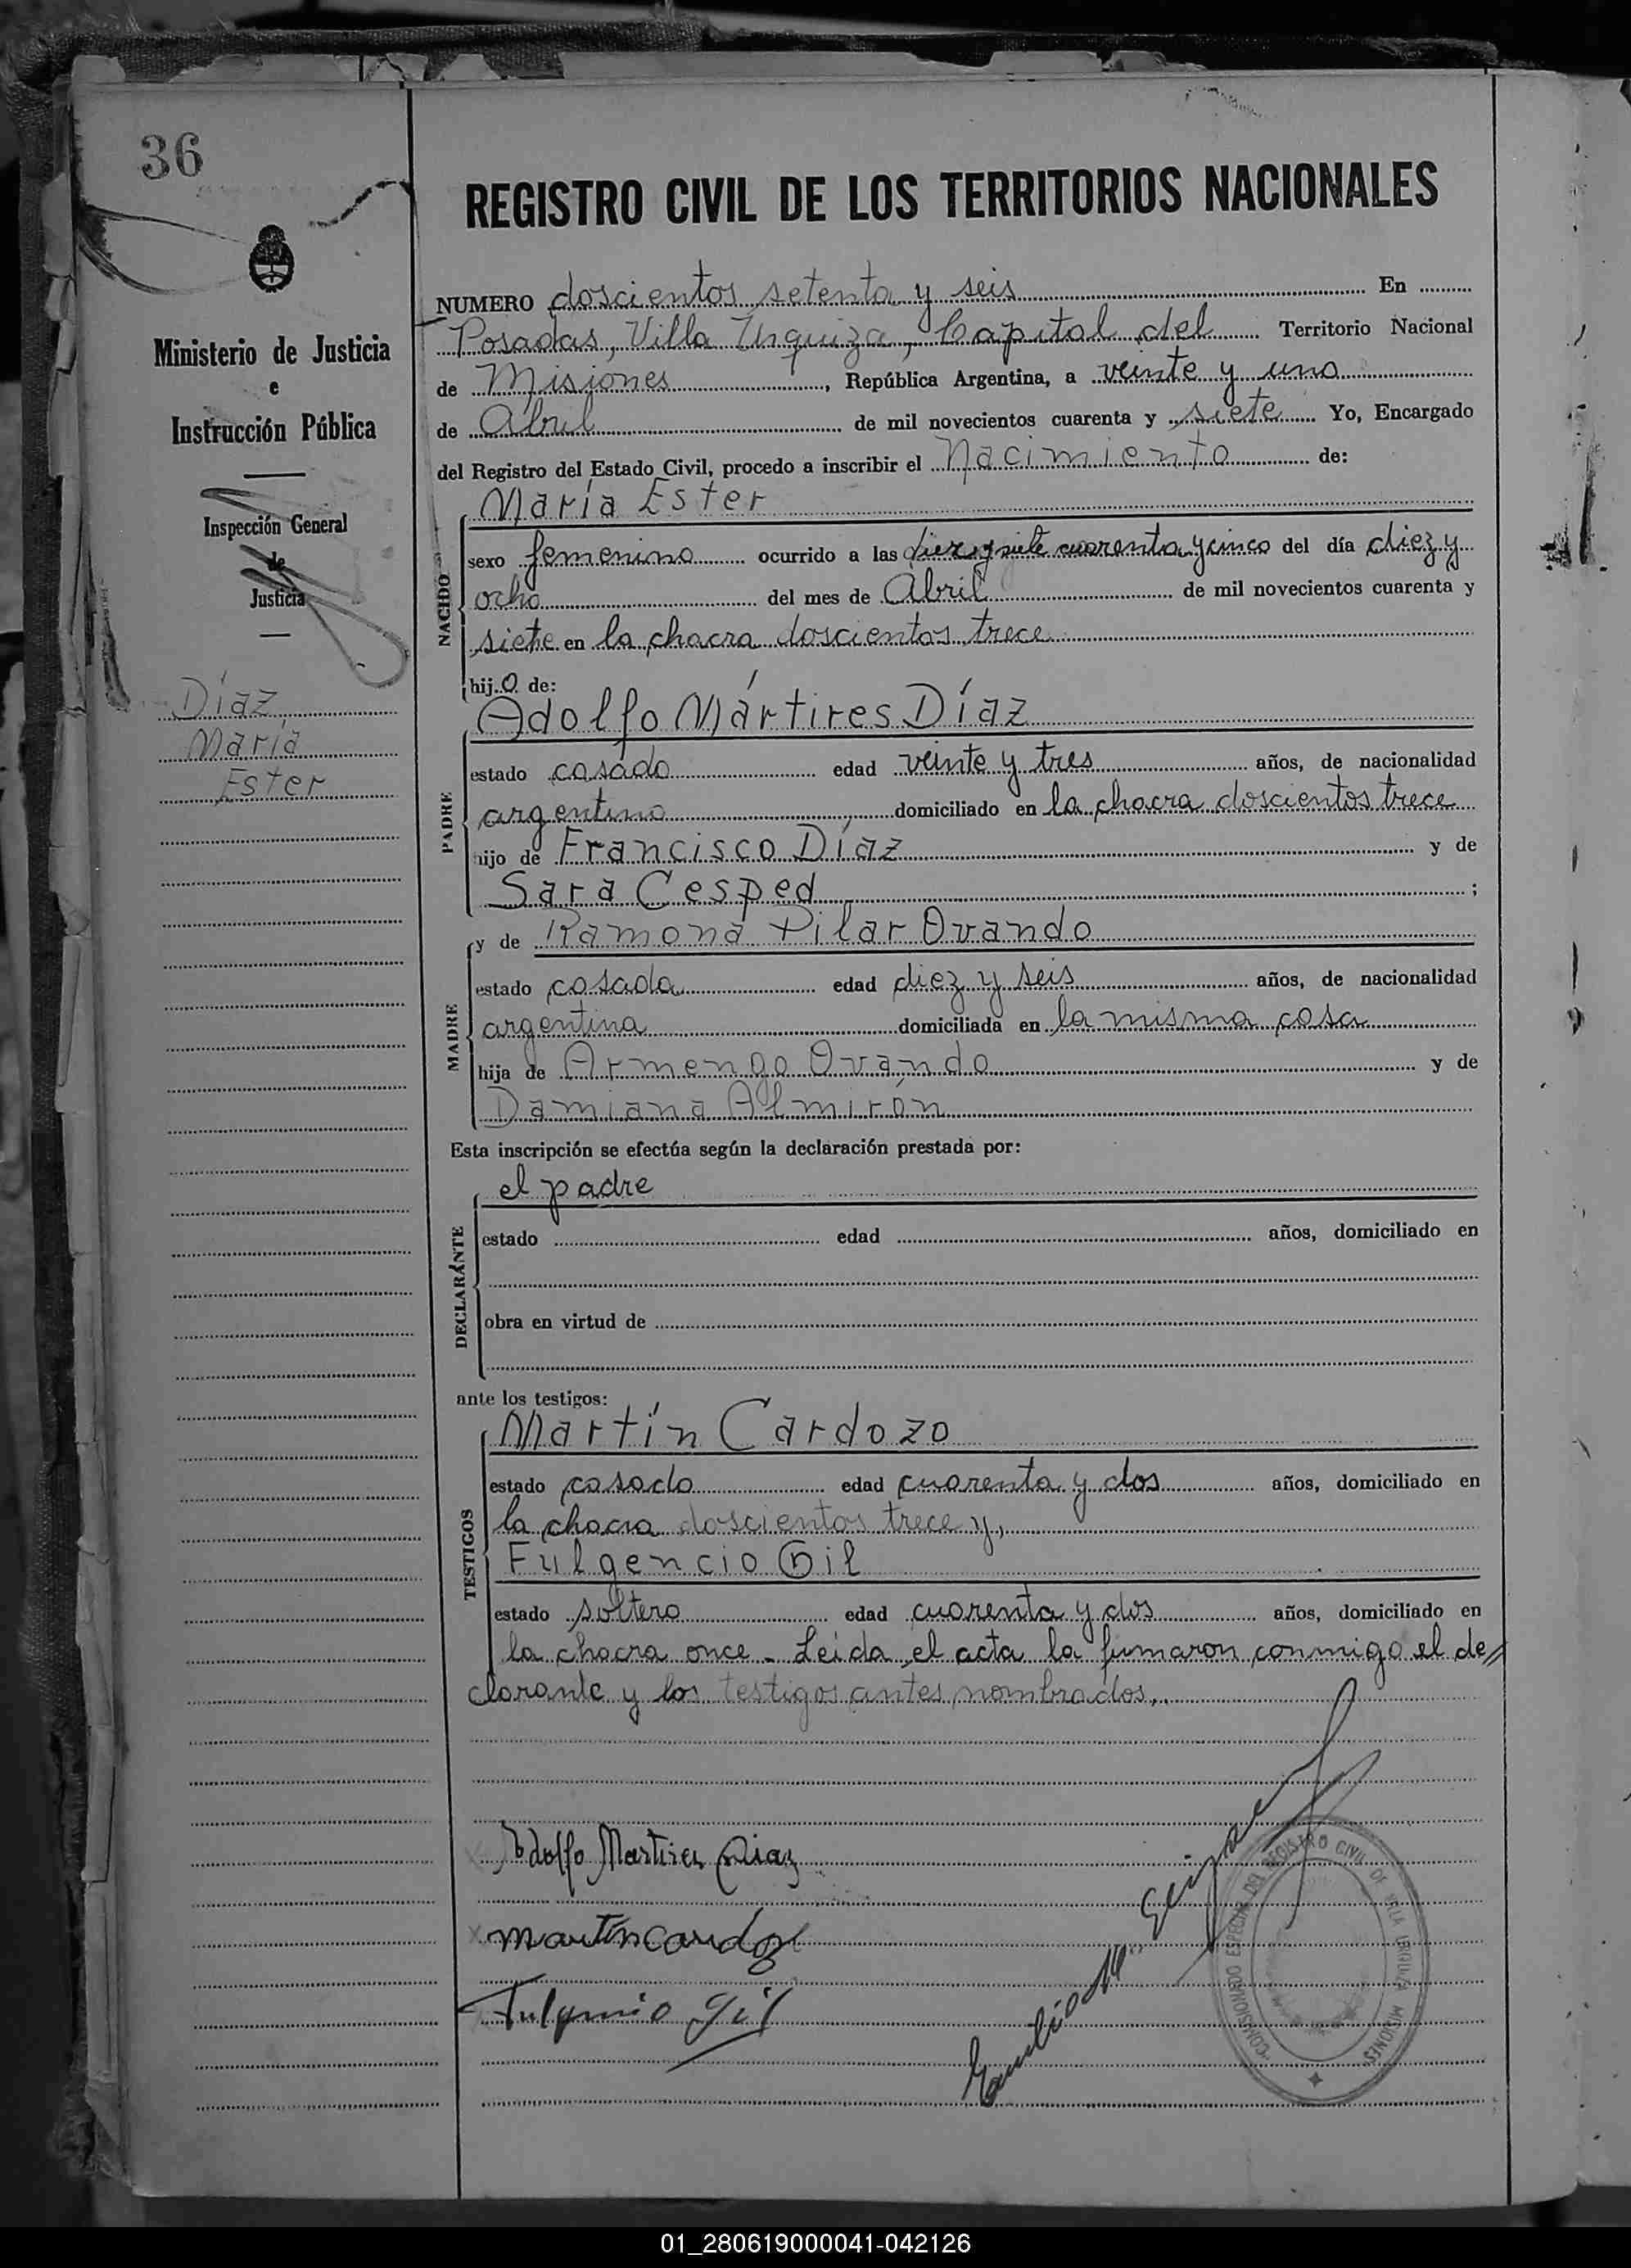 36
REGISTRO CIVIL DE LOS TERRITORIOS NACIONALES
Ministerio de Justicia
e
Instrucción Pública
Inspección General
de
Justicia
Díaz,
María
Ester
NUMERO doscientos setenta y seis En
Posadas, Villa Urquiza, Capital del Territorio Nacional
de Misiones, República Argentina, a veinte y uno
de Abril de mil novecientos cuarenta y siete Yo, Encargado
del Registro del Estado Civil, procedo a inscribir el Nacimiento de:
NACIDO
María Ester
sexo femenino ocurrido a las diez y siete cuarenta y cinco del día diez y
ocho del mes de Abril de mil novecientos cuarenta y
siete en la chacra doscientos trece
hijo de:
PADRE
Adolfo Mártires Díaz
estado casado edad veinte y tres años, de nacionalidad
argentino domiciliado en la chacra doscientos trece
hijo de Francisco Díaz y de
Sara Cesped ;
MADRE
y de Ramona Pilar Ovando
estado casada edad diez y seis años, de nacionalidad
argentina domiciliada en la misma casa
hija de Armengo Ovando y de
Damiana Almirón
Esta inscripción se efectúa según la declaración prestada por:
DECLARANTE
el padre
estado edad años, domiciliado en
obra en virtud de
ante los testigos:
TESTIGOS
Martín Cardozo
estado casado edad cuarenta y dos años, domiciliado en
la chacra doscientos trece y,
Fulgencio Gil
estado soltero edad cuarenta y dos años, domiciliado en
la chacra once - Leida el acta la firmaron conmigo el de//
clarante y los testigos antes nombrados.
Adolfo Martires Diaz
Martin Cardozo
Fulgencio Gil
Emilio
COMISIONADO ESPECIAL DEL REGISTRO CIVIL DE VILLA URQUIZA MISIONES
01_280619000041-042126